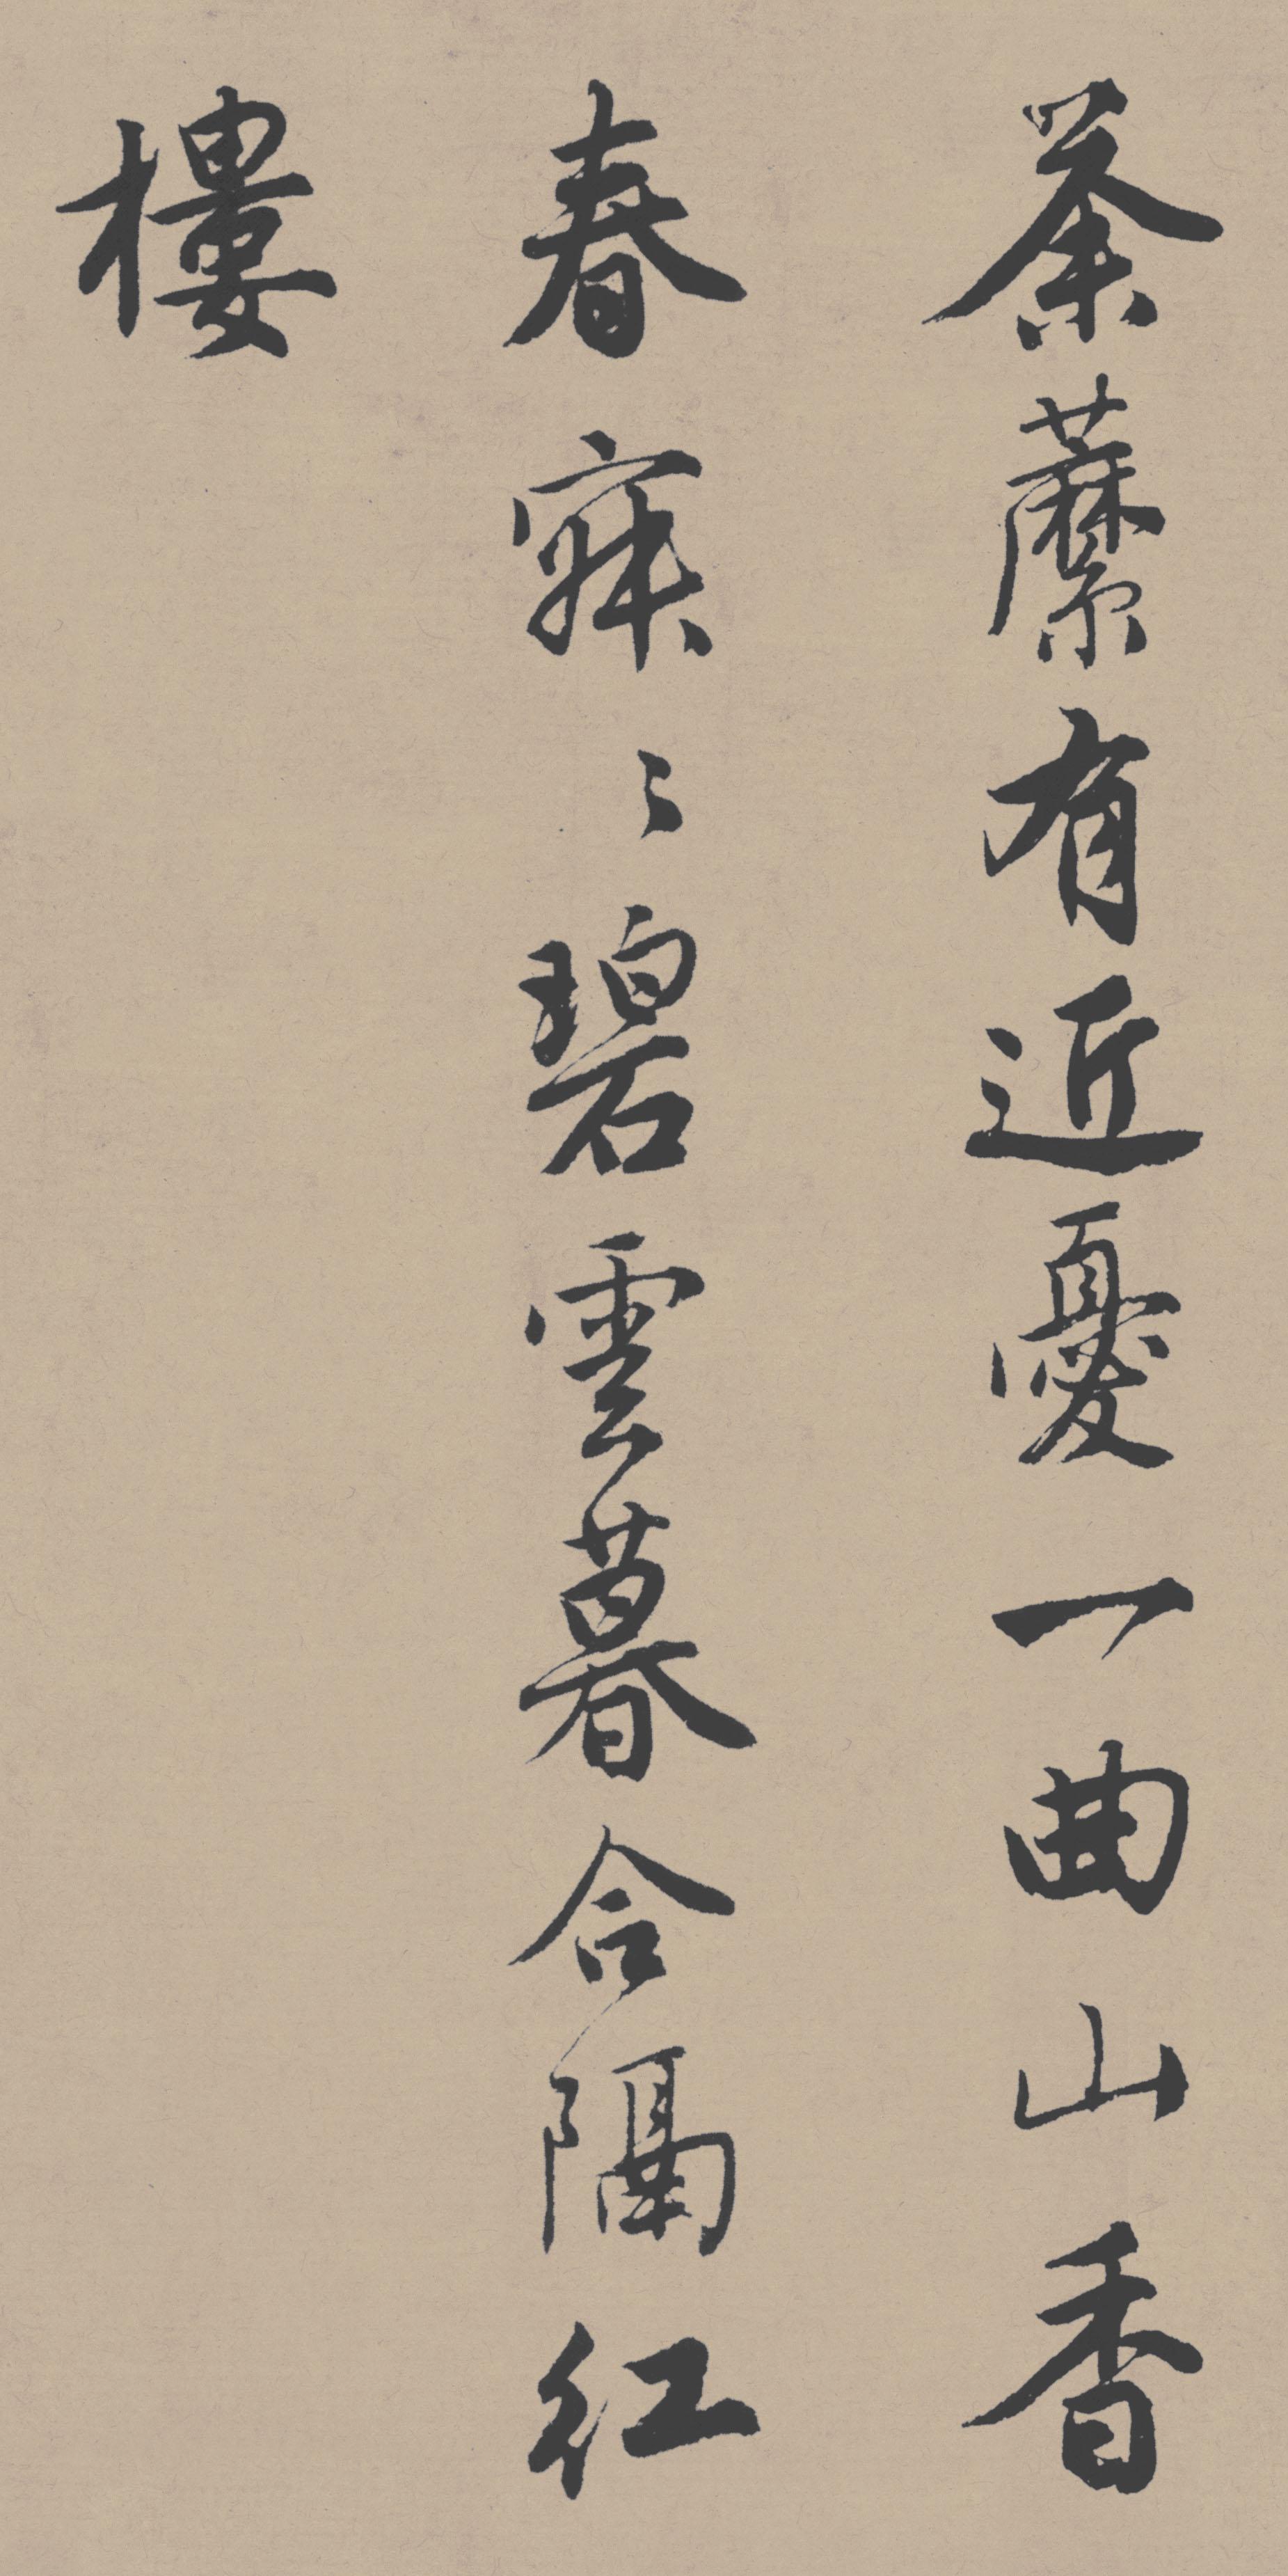 荼蘼有近憂一曲山香
春寂〻碧雲暮合隔紅
樓